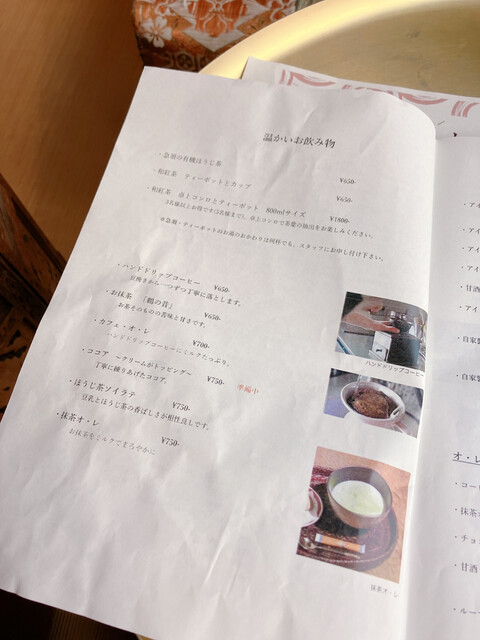 温かいお飲み物
・急須の有機ほうじ茶 ¥650-
・和紅茶 ティーポットとカップ ¥650-
・和紅茶 卓上コンロとティーポット 800mlサイズ ¥1800-
2名様以上お得です(3名様まで)。卓上コンロで茶葉の抽出をお楽しみください。
※急須・ティーポットのお湯のおかわりは何杯でも、スタッフにお申し付け下さい。
・ハンドドリップコーヒー ¥650-
豆挽きから一つずつ丁寧に落とします。
・お抹茶 「鶴の昔」 ¥650-
お茶そのものの苦味と甘さです。
・カフェ・オ・レ ¥700-
ハンドドリップコーヒーにミルクたっぷり。
・ココア ～クリームがトッピング～ ¥750- 準備中
丁寧に練りあげたココア。
・ほうじ茶ソイラテ ¥750-
豆乳とほうじ茶の香ばしさが相性良しです。
・抹茶オ・レ ¥750-
お抹茶をミルクでまろやかに
ハンドドリップコーヒー
抹茶オ・レ
・アイ
・アイ
・アイ
・アイ
・甘酒
・アイ
・自家製
・自家製
オ・レ
・コー
・抹茶オ
・チョ
・甘酒
・ルー